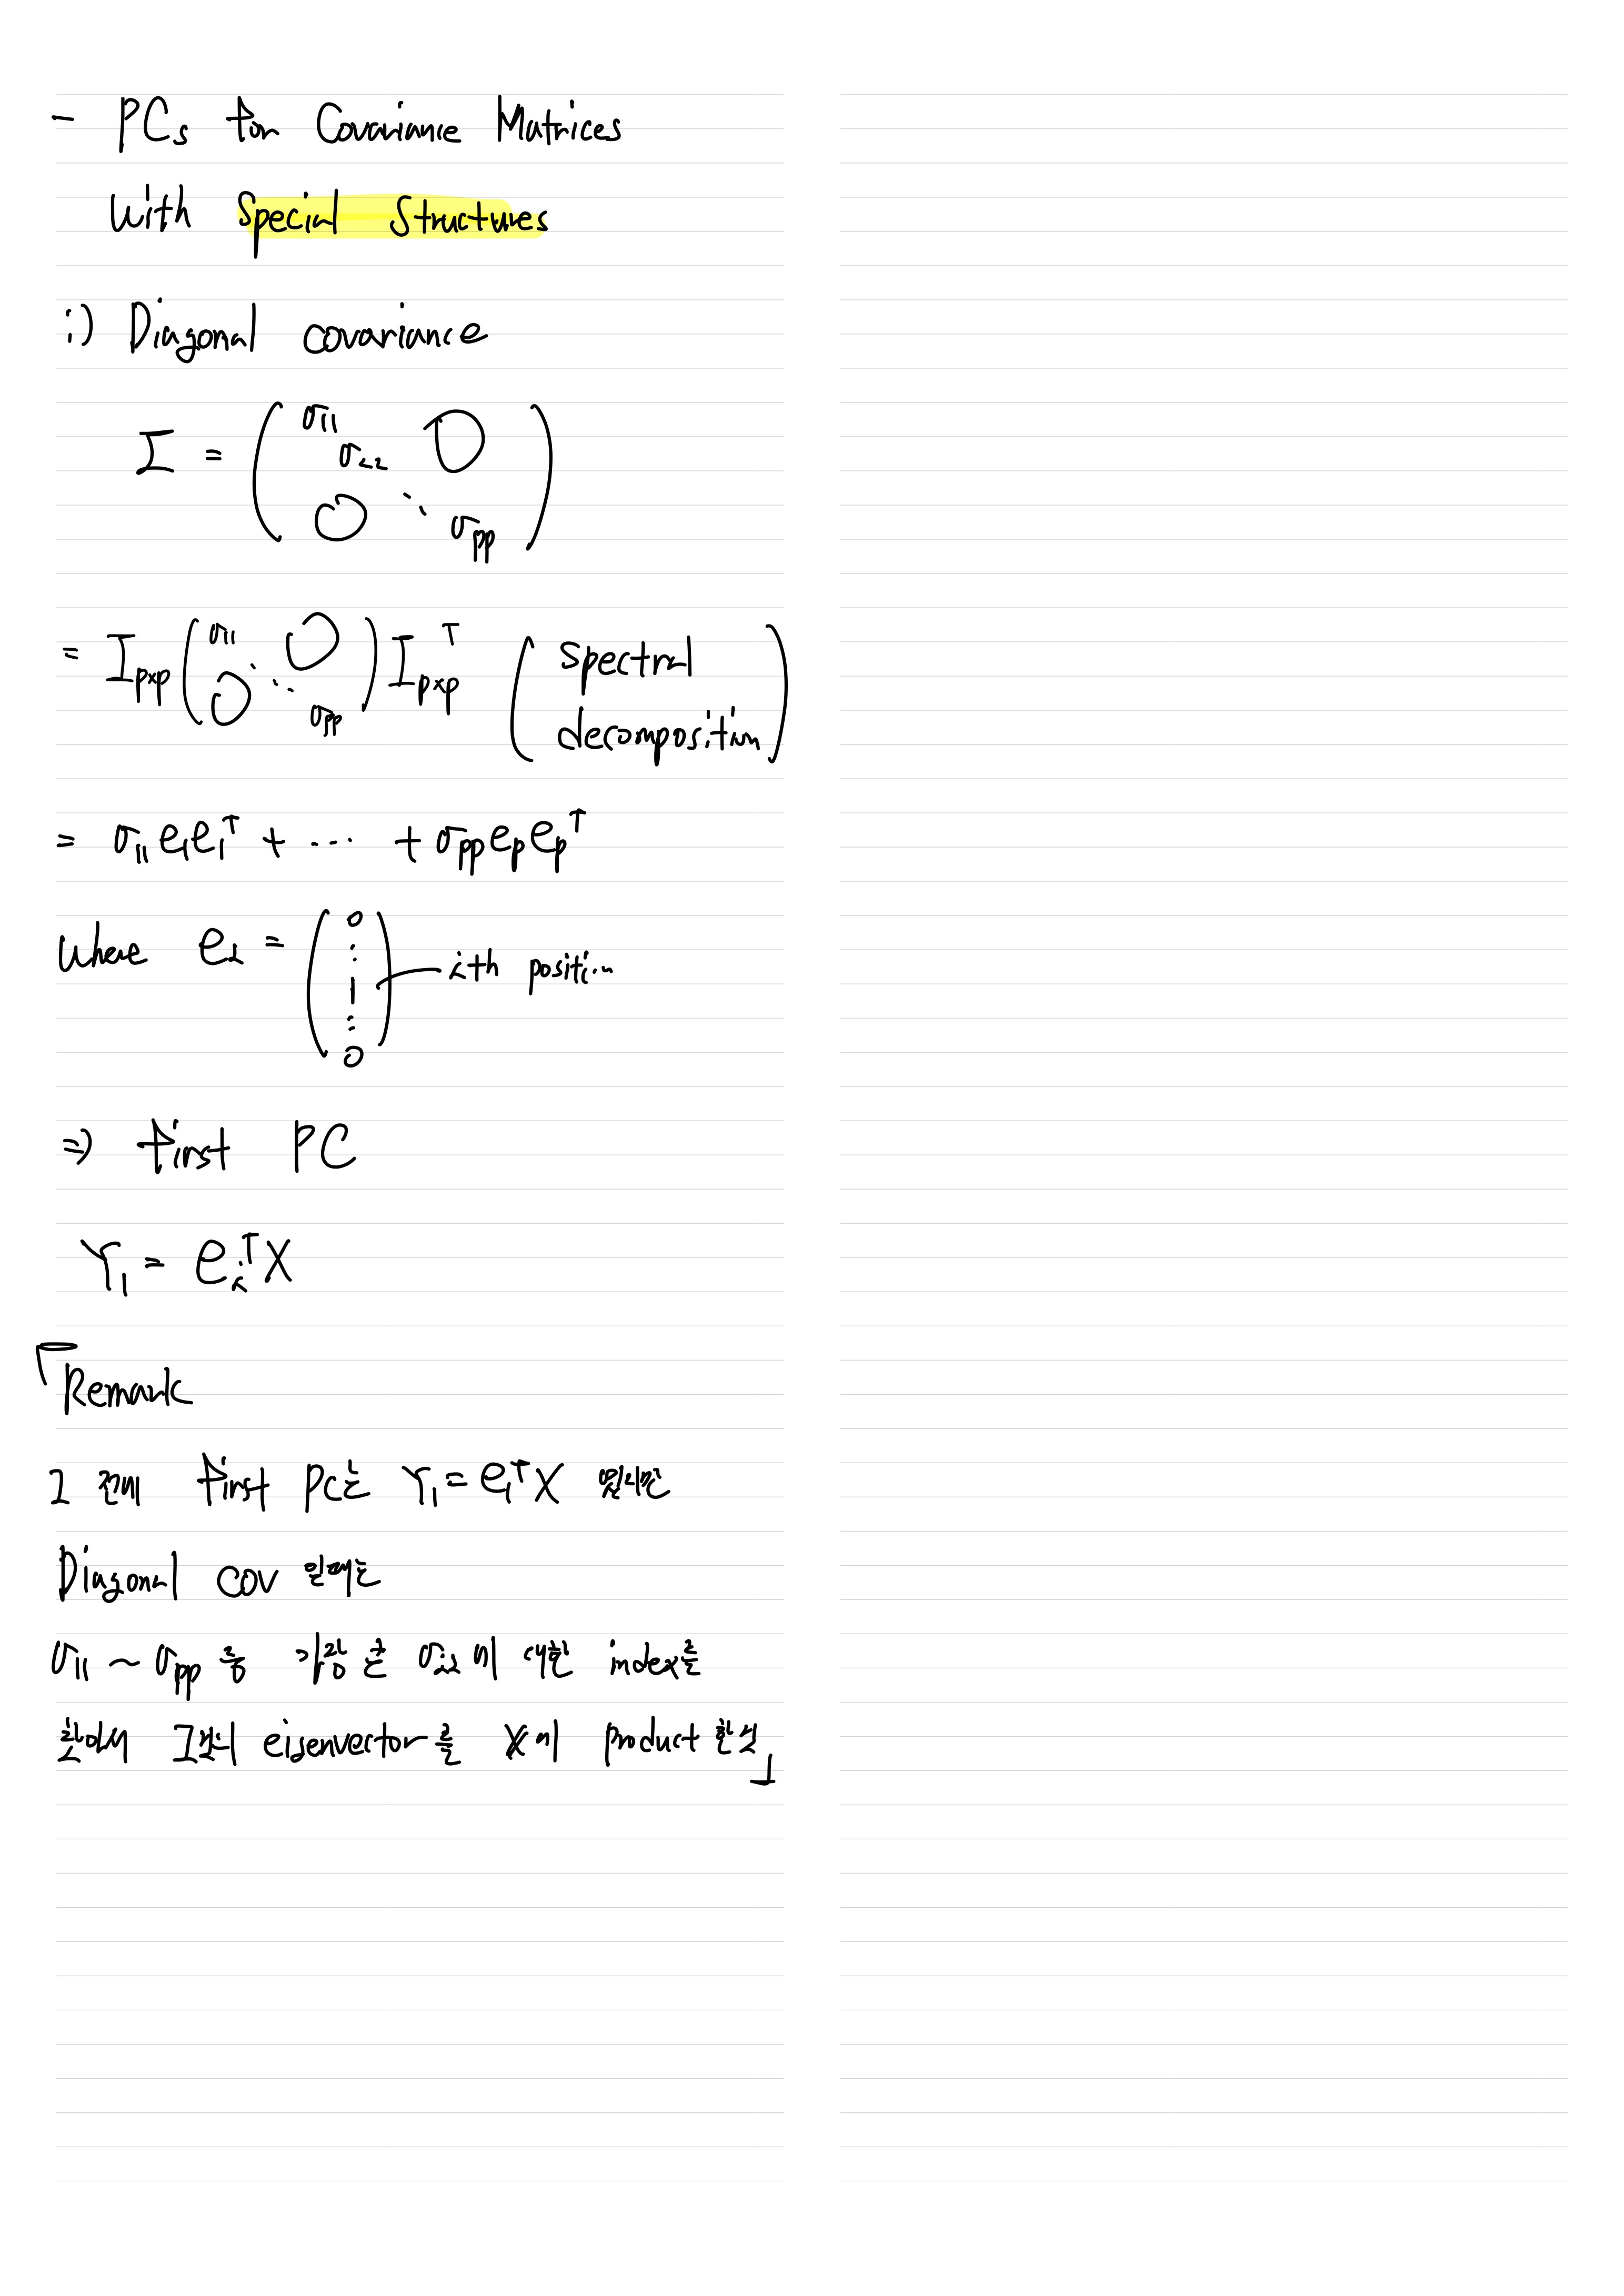 - PCs for Covariance Matrices
with Special Structures
i) Diagonal covariance
Σ = ( σ11 σ22 0 0 ⋱ σpp )
= Ip×p ( σ11 0 0 ⋱ σpp ) Ip×p^T ( spectral decomposition )
= σ11 e1e1^T + ⋯ + σpp ep ep^T
where ei = ( 0 ⋮ 1 ⋮ 0 ) ith position
⇒ first PC
Y1 = ei^T X
「Remark
그 전에 first PC는 Y1 = e1^T X 였지만
Diagonal cov 일때는
σ11 ~ σpp 중 가장 큰 σii에 대한 index를
찾아서 그 eigenvector를 X에 product 한 것」